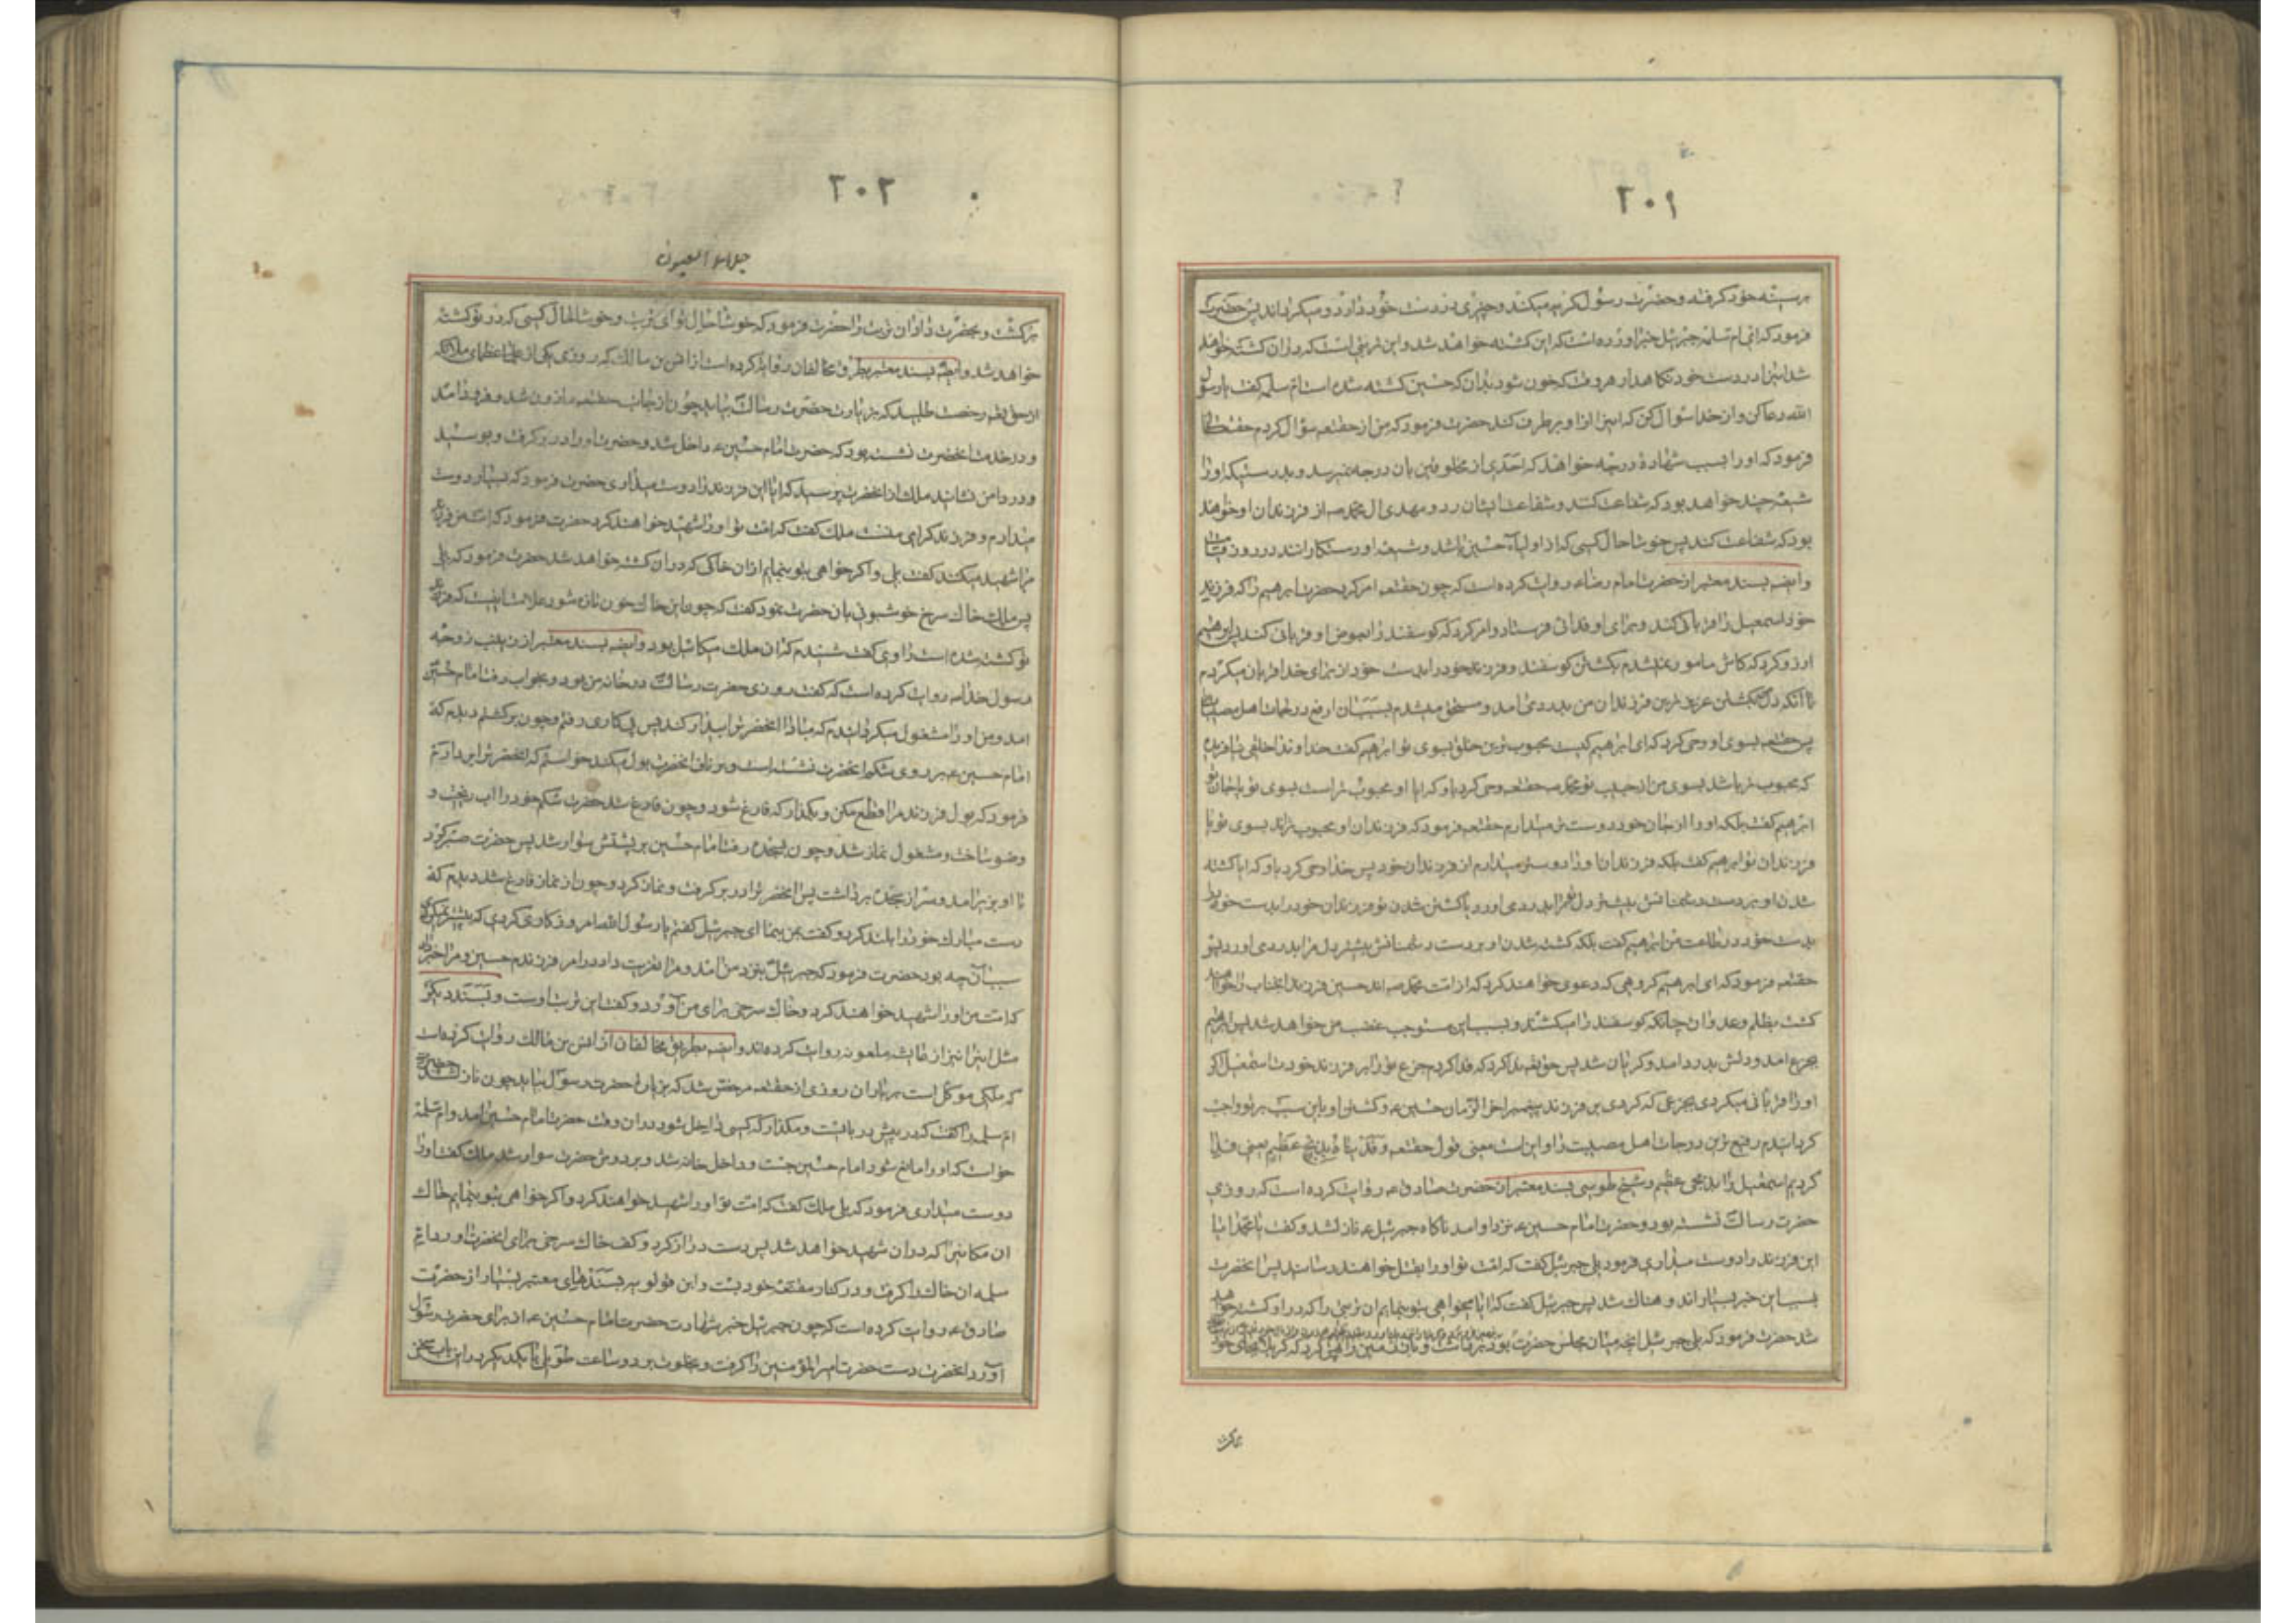 ۲۰۱
بر سینه خود گرفته و حضرت رسول گریه میکند و چیزی در دست خود دارد و میگرداند پس حضرت
فرمود که ای ام سلمه جبرئیل خبر اورده است که این کشته خواهد شد و این تربتی است که در ان کشته خواهد
شد این را در دست خود نگاهدار هر وقت که خون شود بدان که حسین کشته شده است ام سلمه گفت یا رسول
الله دعا کن و از خدا سوال کن که این را از او برطرف کند حضرت فرمود که من از حقتعه سؤال کردم حقتعالی
فرمود که او را بسبب شهادة درجه خواهد که احدی از مخلوقین بان درجه نمیرسد و بدرستیکه او را
شیعه چند خواهد بود که شفاعت کنند و شفاعت ایشان رد و مهدی ال محمد صه از فرزندان او خواهند
بود که شفاعت کند پس خوشا حال کسی که از اولیاء حسین باشد و شیعه او رستکارانند در روز قیامت
وایضه بسند معتبر از حضرت امام رضاء روایت کرده است که چون حقتعه امر کرد حضرت ابرهیم را که فرزند
خود اسمعیل را قربانی کند و برای او فدائی فرستاد و امر کرد که کوسفند را بعوض او قربانی کند پس ابرهیم
ارزو کرد که کاش مامور نمیشدم بکشتن کوسفند و فرزند خود را بدست خود از برای خدا قربان میکردم
تا آنکه دل بکشتن عزیزترین فرزندان من بدرد می امد و مستحق میشدم بسبب ان ارفع درجات اهل مصیبت را
پس حقتعه بسوی او وحی کرد که ای ابرهیم کیست محبوب ترین خلق بسوی تو ابرهیم گفت خداوندا خلقی نیافریده
که محبوب تر باشد بسوی من از حبیب تو محمد صه حقتعه وحی کرد باو که ایا او محبوب تر است بسوی تو یا جان تو
ابرهیم گفت بلکه او را از جان خود دوست تر میدارم حقتعه فرمود که فرزندان او محبوب تراند بسوی تو یا
فرزندان تو ابرهیم گفت بلکه فرزندان او را دوستتر میدارم از فرزندان خود پس خدا وحی کرد باو که ایا کشته
شدن او بر دست دشمنانش بیشتر دل ترا بدرد می اورد یا کشتن شدن تو فرزندان خود را بدست خود
بدست خود در طاعت من ابرهیم گفت بلکه کشته شدن او بر دست دشمنانش بیشتر دل مرا بدرد می اورد پس
حقتعه فرمود که ای ابرهیم کروهی که دعوی خواهند کرد که از امت محمد صه اند حسین فرزند انجناب را خواهند
کشت بظلم و عدوان چنانکه کوسفند را میکشند و بسبب این مستوجب غضب من خواهد شد پس ابرهیم
بجزع امد و دلش بدرد امد و کریان شد پس حقتعه ندا کرد که فدا کردم جزع تو را بر فرزند خودت اسمعیل اگر
او را قربانی میکردی بجزعی که کردی بر فرزند پیغمبر اخر الزمان حسین ء و کشتن او باین سبب بر تو واجب
کردانیدم رفیع ترین درجات اهل مصیبت را و این است معنی قول حقتعه و فدیناه بذبح عظیم یعنی فدا
کردیم اسمعیل را بذبحی عظیم و شیخ طوسی بسند معتبر از حضرت صادق ء روایت کرده است که روزی
حضرت رسالت نشسته بود و حضرت امام حسین ء نزد او امد ناکاه جبرئیل ء نازل شد و گفت یا محمد ایا
این فرزند را دوست میداری فرمود بلی جبرئیل گفت که امت تو او را بقتل خواهند رسانید پس انحضرت
بسبب این خبر بسیار اندوهناک شد پس جبرئیل گفت که ایا میخواهی بتو بنمایم ان تربتی را که در او کشته خواهد
شد حضرت فرمود که بلی جبرئیل انچه میان مجلس حضرت بود
۲۰۲
جلاء العیون
برکشت و بحضرت داد ان تربت را حضرت فرمود که خوشا حال تو ای تربت و خوشا حال کسی که در تو کشته
خواهد شد وایضه بسند معتبر بطریق مخالفان روایت کرده است از انس بن مالک که روزی یکی از عظمای ملائکه
از حقتعه رخصت طلبید که بزیارت حضرت رسالت بیاید چون از جانب حقتعه ماذون شد و فرود امد
و در خدمت انحضرت نشسته بود که حضرت امام حسین ء داخل شد و حضرت او را در بر کرفت و بوسید
و در دامن نشانید ملک از انحضرت پرسید که ایا این فرزند را دوست میداری حضرت فرمود که بسیار دوست
میدارم و فرزند کرامی منست ملک گفت که امت تو او را شهید خواهند کرد حضرت فرمود که امت من فرزند
مرا شهید میکنند گفت بلی و اکر خواهی بتو بنمایم از ان خاکی که در ان کشته خواهد شد حضرت فرمود که بلی
پس ملک خاک سرخ خوشبوئی بان حضرت نمود گفت که چون این خاک خون تازه شود علامت اینست که فرزند
تو کشته شده است راوی گفت شنیدم که ان ملک میکائیل بود وایضه بسند معتبر از زینب زوجه
رسول خدا صه روایت کرده است که گفت روزی حضرت رسالت در خانه من بود و بخواب رفت امام حسین
امد و من او را مشغول میکردانیدم که مبادا انحضرت را بیدار کند پس پی کاری رفتم و چون برکشتم دیدم که
امام حسین ء بر روی شکم انحضرت نشسته است و بر ناف انحضرت بول میکند خواستم که انحضرت را بردارم
فرمود که بول فرزند مرا قطع مکن و بگذار که فارغ شود و چون فارغ شد حضرت شکم خود را اب ریخت و
وضو ساخت و مشغول نماز شد و چون بسجده رفت امام حسین بر پشتش سوار شد پس حضرت صبر کرد
تا او بزیر امد و سر از سجده برداشت پس انحضرت او را در بر کرفت و نماز کرد و چون از نماز فارغ شد دیدم که
دست مبارک خود را بلند کرد و گفت بمن بنما ای جبرئیل گفتم یا رسول الله امروز کاری کردی که پیشتر نمیکردی
سبب آن چه بود حضرت فرمود که جبرئیل بنزد من امد و مرا تعزیت داد در امر فرزندم حسین و مرا خبر داد
که امت من او را شهید خواهند کرد و خاک سرخی برای من آورد و گفت این تربت اوست و بسند دیگر
مثل این را نیز از عایشه ملعونه روایت کرده اند وایضه بطریق مخالفان از انس بن مالک روایت کرده است
که ملکی موکل است بر باران روزی از حقتعه مرخص شد که بزیارت حضرت رسول بیاید چون نازل شد حضرت
ام سلمه را گفت که در پیش در بایست و مگذار که کسی داخل شود در ان وقت حضرت امام حسین امد و ام سلمه
خواست که او را مانع شود امام حسین جست و داخل خانه شد و بر دوش حضرت سوار شد ملک گفت او را
دوست میداری فرمود که بلی ملک گفت که امت تو او را شهید خواهند کرد و اکر خواهی بتو بنمایم خاک
ان مکانیرا که در ان شهید خواهد شد پس دست دراز کرد و کف خاک سرخی برای انحضرت اورد ام
سلمه ان خاک را کرفت و در کنار مقنعه خود بست و ابن قولویه بسندهای معتبر بسیار از حضرت
صادق ء روایت کرده است که چون جبرئیل خبر شهادت حضرت امام حسین ء از برای حضرت رسول
آورد انحضرت دست حضرت امیر المؤمنین را کرفت و بخلوت برد و ساعت طویلی